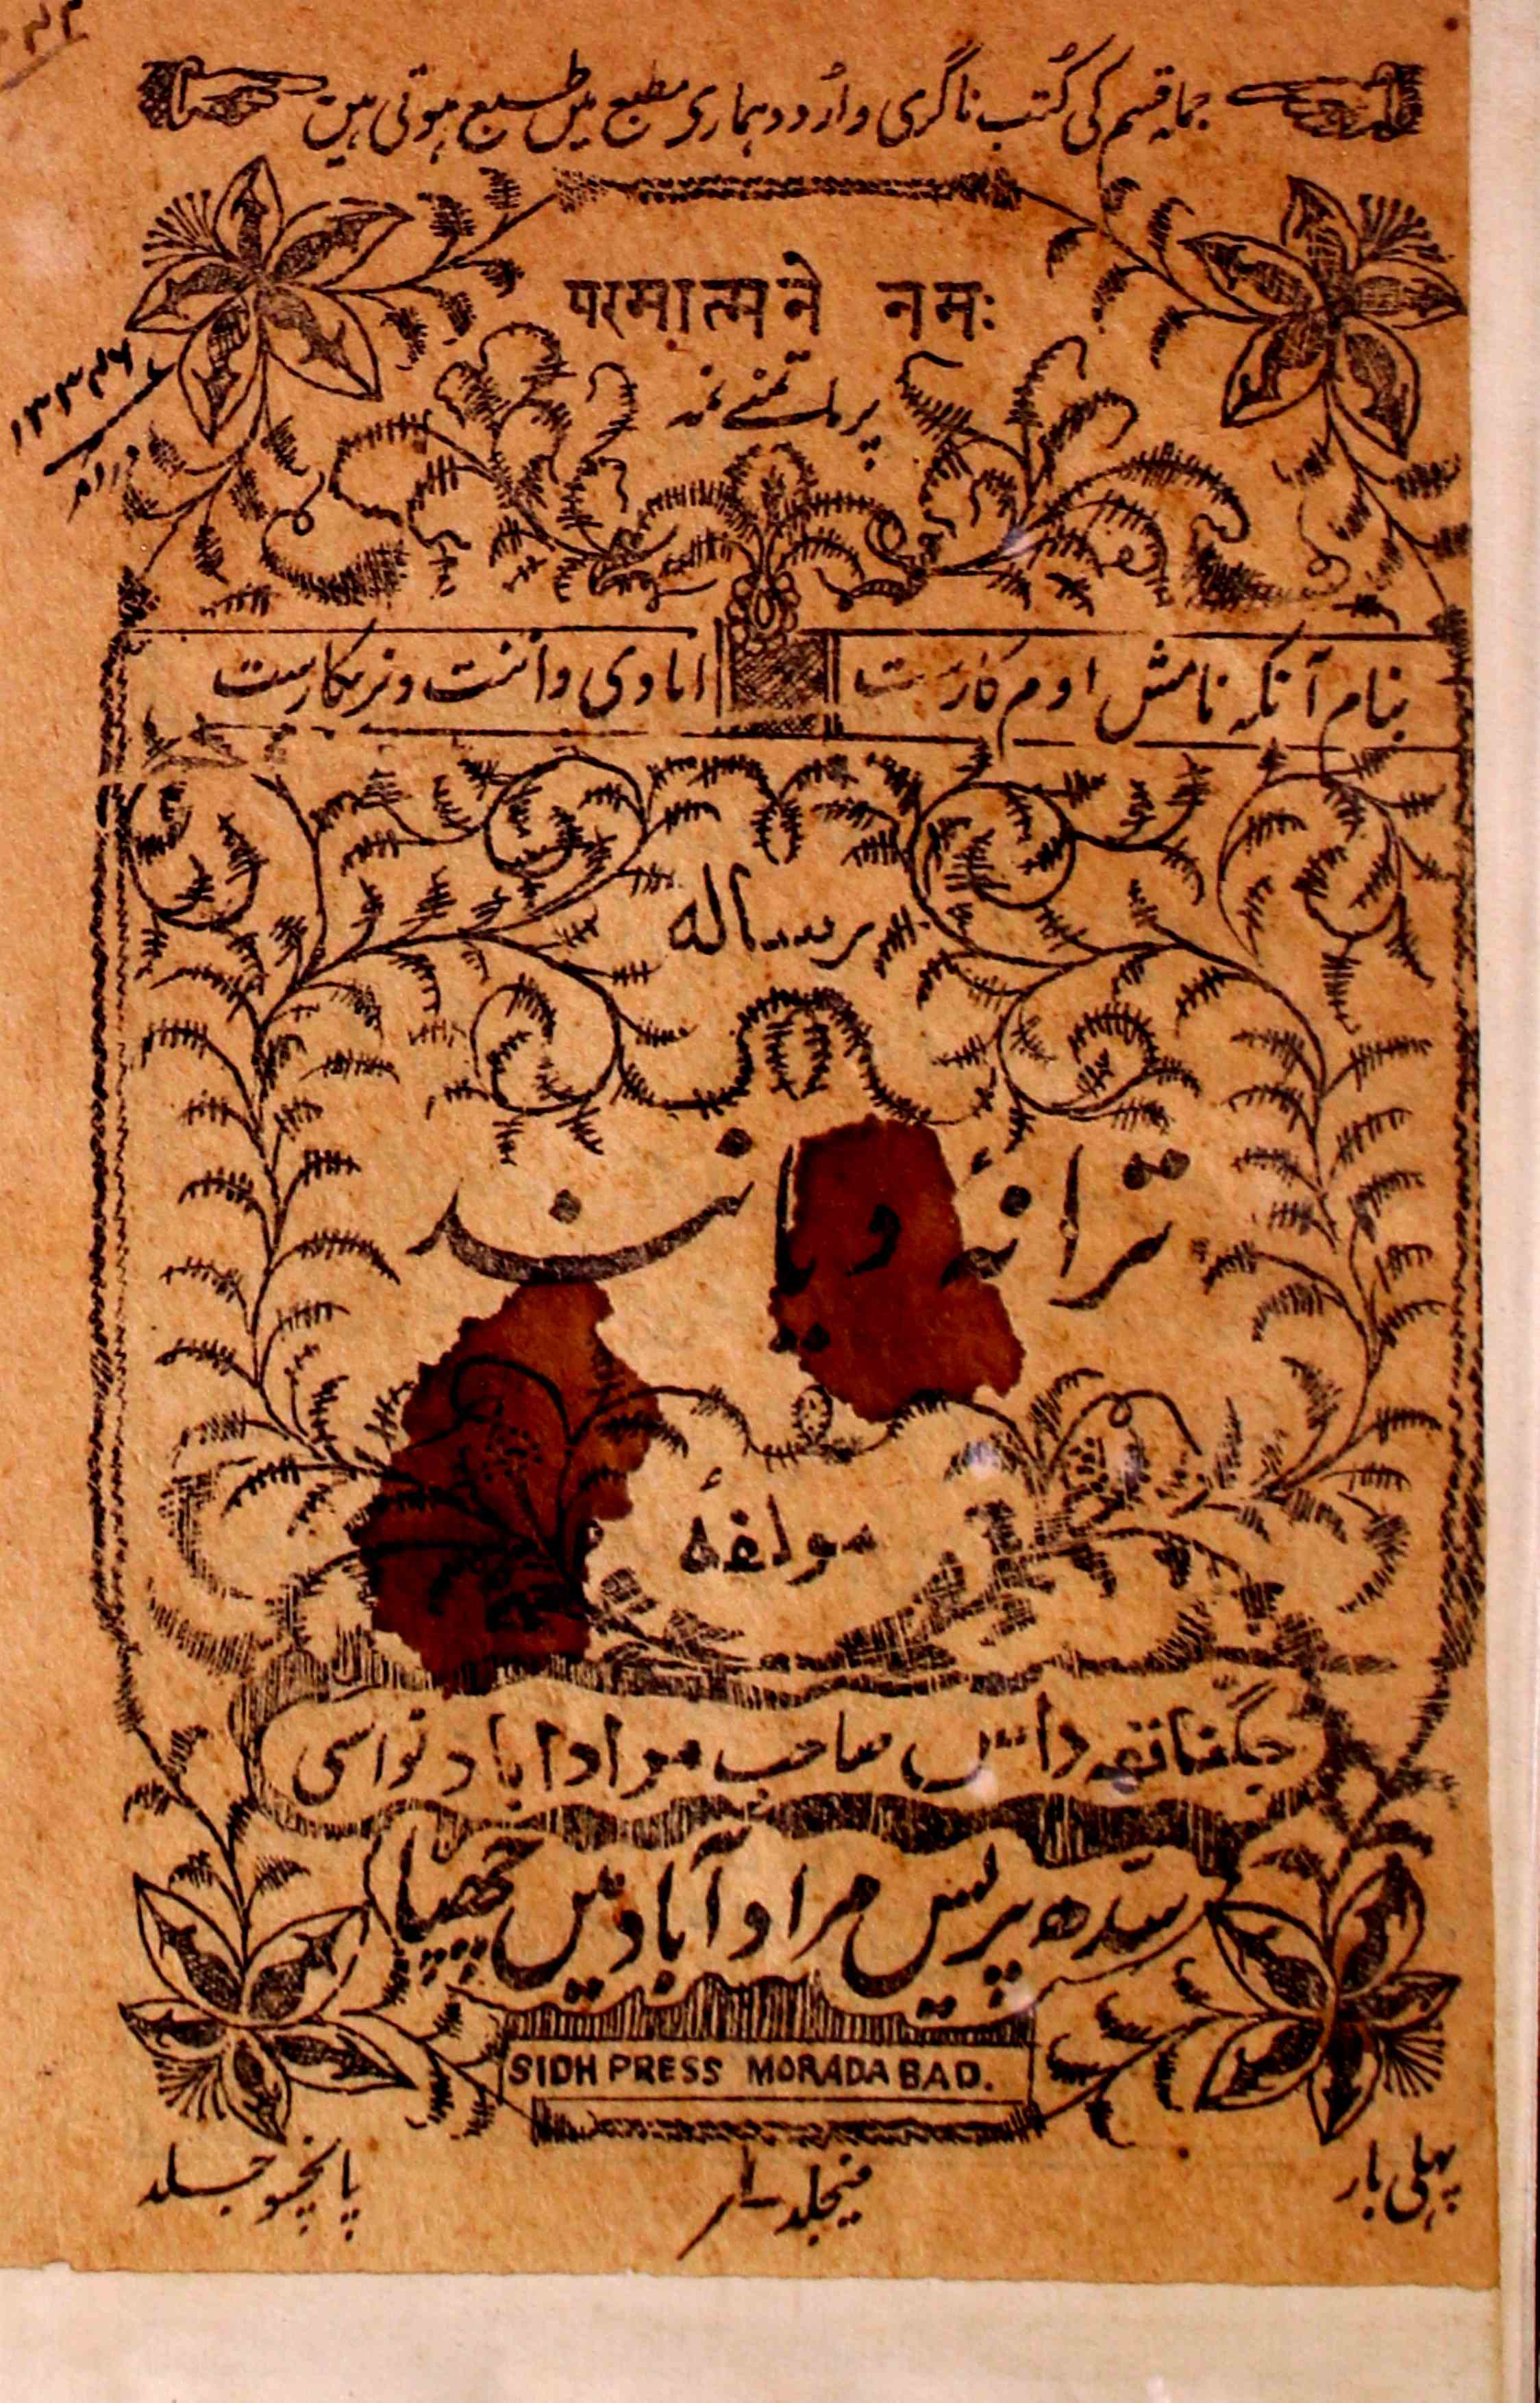 جملہ قسم کی کُتب ناگری و اُردو ہماری مطبع میں طبع ہوتی ہیں
परमात्मने नमः
پرماتمنے نمہ
بنام آنکہ نامش اوم کارست
انادی و اننت و نرنکارست
رسالہ
ترانۂ
مولفۂ
جگناتھہ داس صاحب مرادآباد نواسی
سدھ پریس مرادآباد میں چھپا
SIDH PRESS MORADABAD.
پہلی بار
فیجلد ۱؍
پانچسو جلد